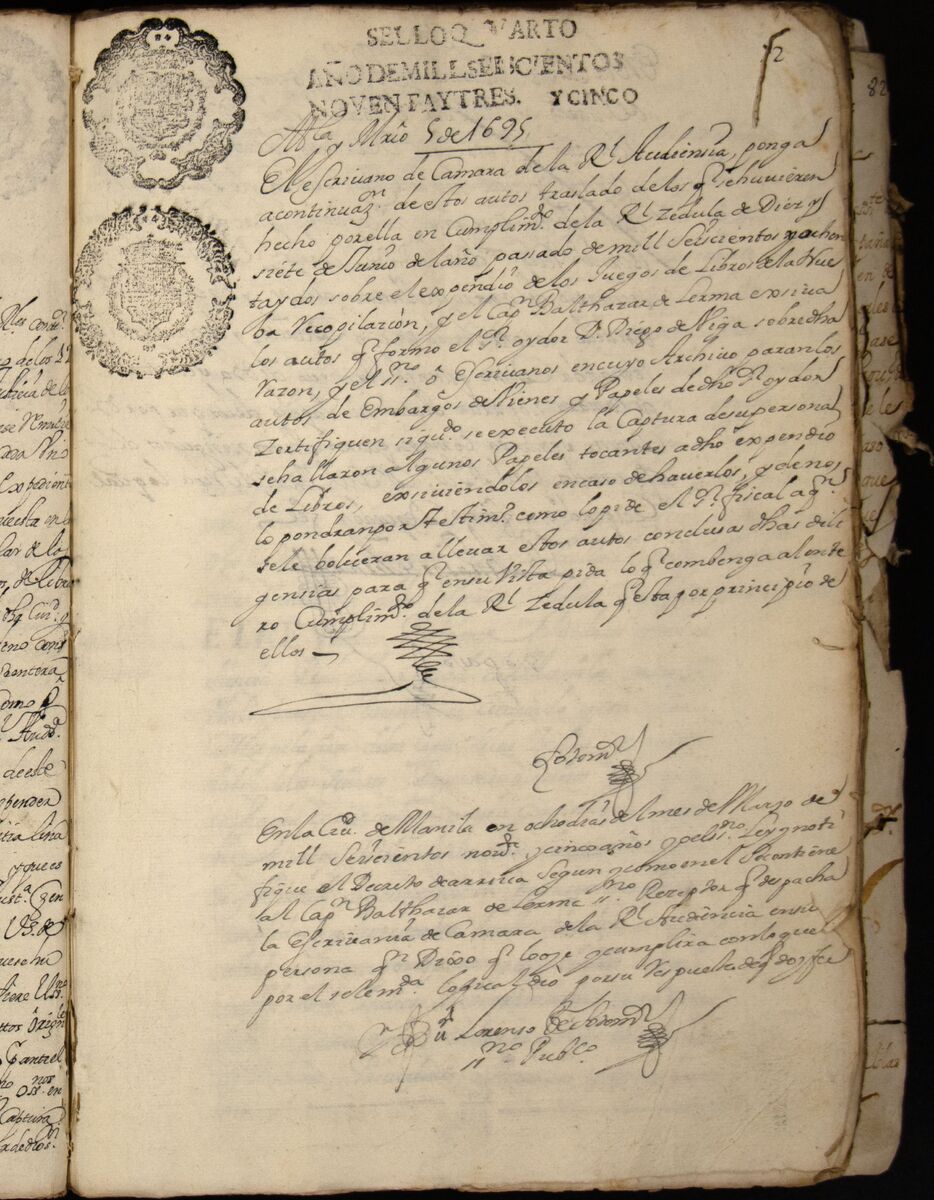 SELLO QVARTO
AÑO DE MILL SEISCIENTOS
NOVENTA Y TRES. Y CINCO
2
Mla y Mrzo 5 de 1695
El escrivano de Camara de la Rl Audiencia, ponga
a continuazn de estos autos traslado de los qe se huvieren
hecho por ella en Cumplimto de la Rl Zedula de Diez y
siete de Junio del año pasado de mill Seiscientos y ochen
ta y dos sobre el expendio de los Juegos de Libros de la Nue
ba Recopilazion, y el Capn Balthazar de Lerma exsiva
los autos qe formo el Sr oydor Dn Diego de Viga sobre dha
razon, y el ssno o Escrivanos en cuyo Archivo paran los
autos de Embargos de Vienes y Papeles de dho Sr oydor
Zertifiquen si qudo se executo la Captura de su persona
se hallaron algunos Papeles tocantes a dho expendio
de Libros, exsiviendolos en caso de haverlos, y de no
lo pondran por testimo como lo pide el Sr fiscal a qn
se le bolveran a llevar estos autos conclusas dhas dili
gensias para qe en su Vista pida lo qe combenga al ente
ro Cumplimto de la Rl Zedula qe esta por principio de
ellos
En la Ciud de Manila en ocho dias del mes de Marzo de
mill Seiscientos novta y cinco años yo el ssno Ley y noti
fique el Decreto de arriva Segun y como en el se contiene
al Capn Balthazar de Lerma ssno Receptor qe despacha
la Escrivania de Camara de la Rl Audiencia en su
persona qn Dixo qe lo oye y cumplira con lo que
por el se le mda lo qual dio por su Respuesta de qe doy fee
Lorenso
ssno Pubco